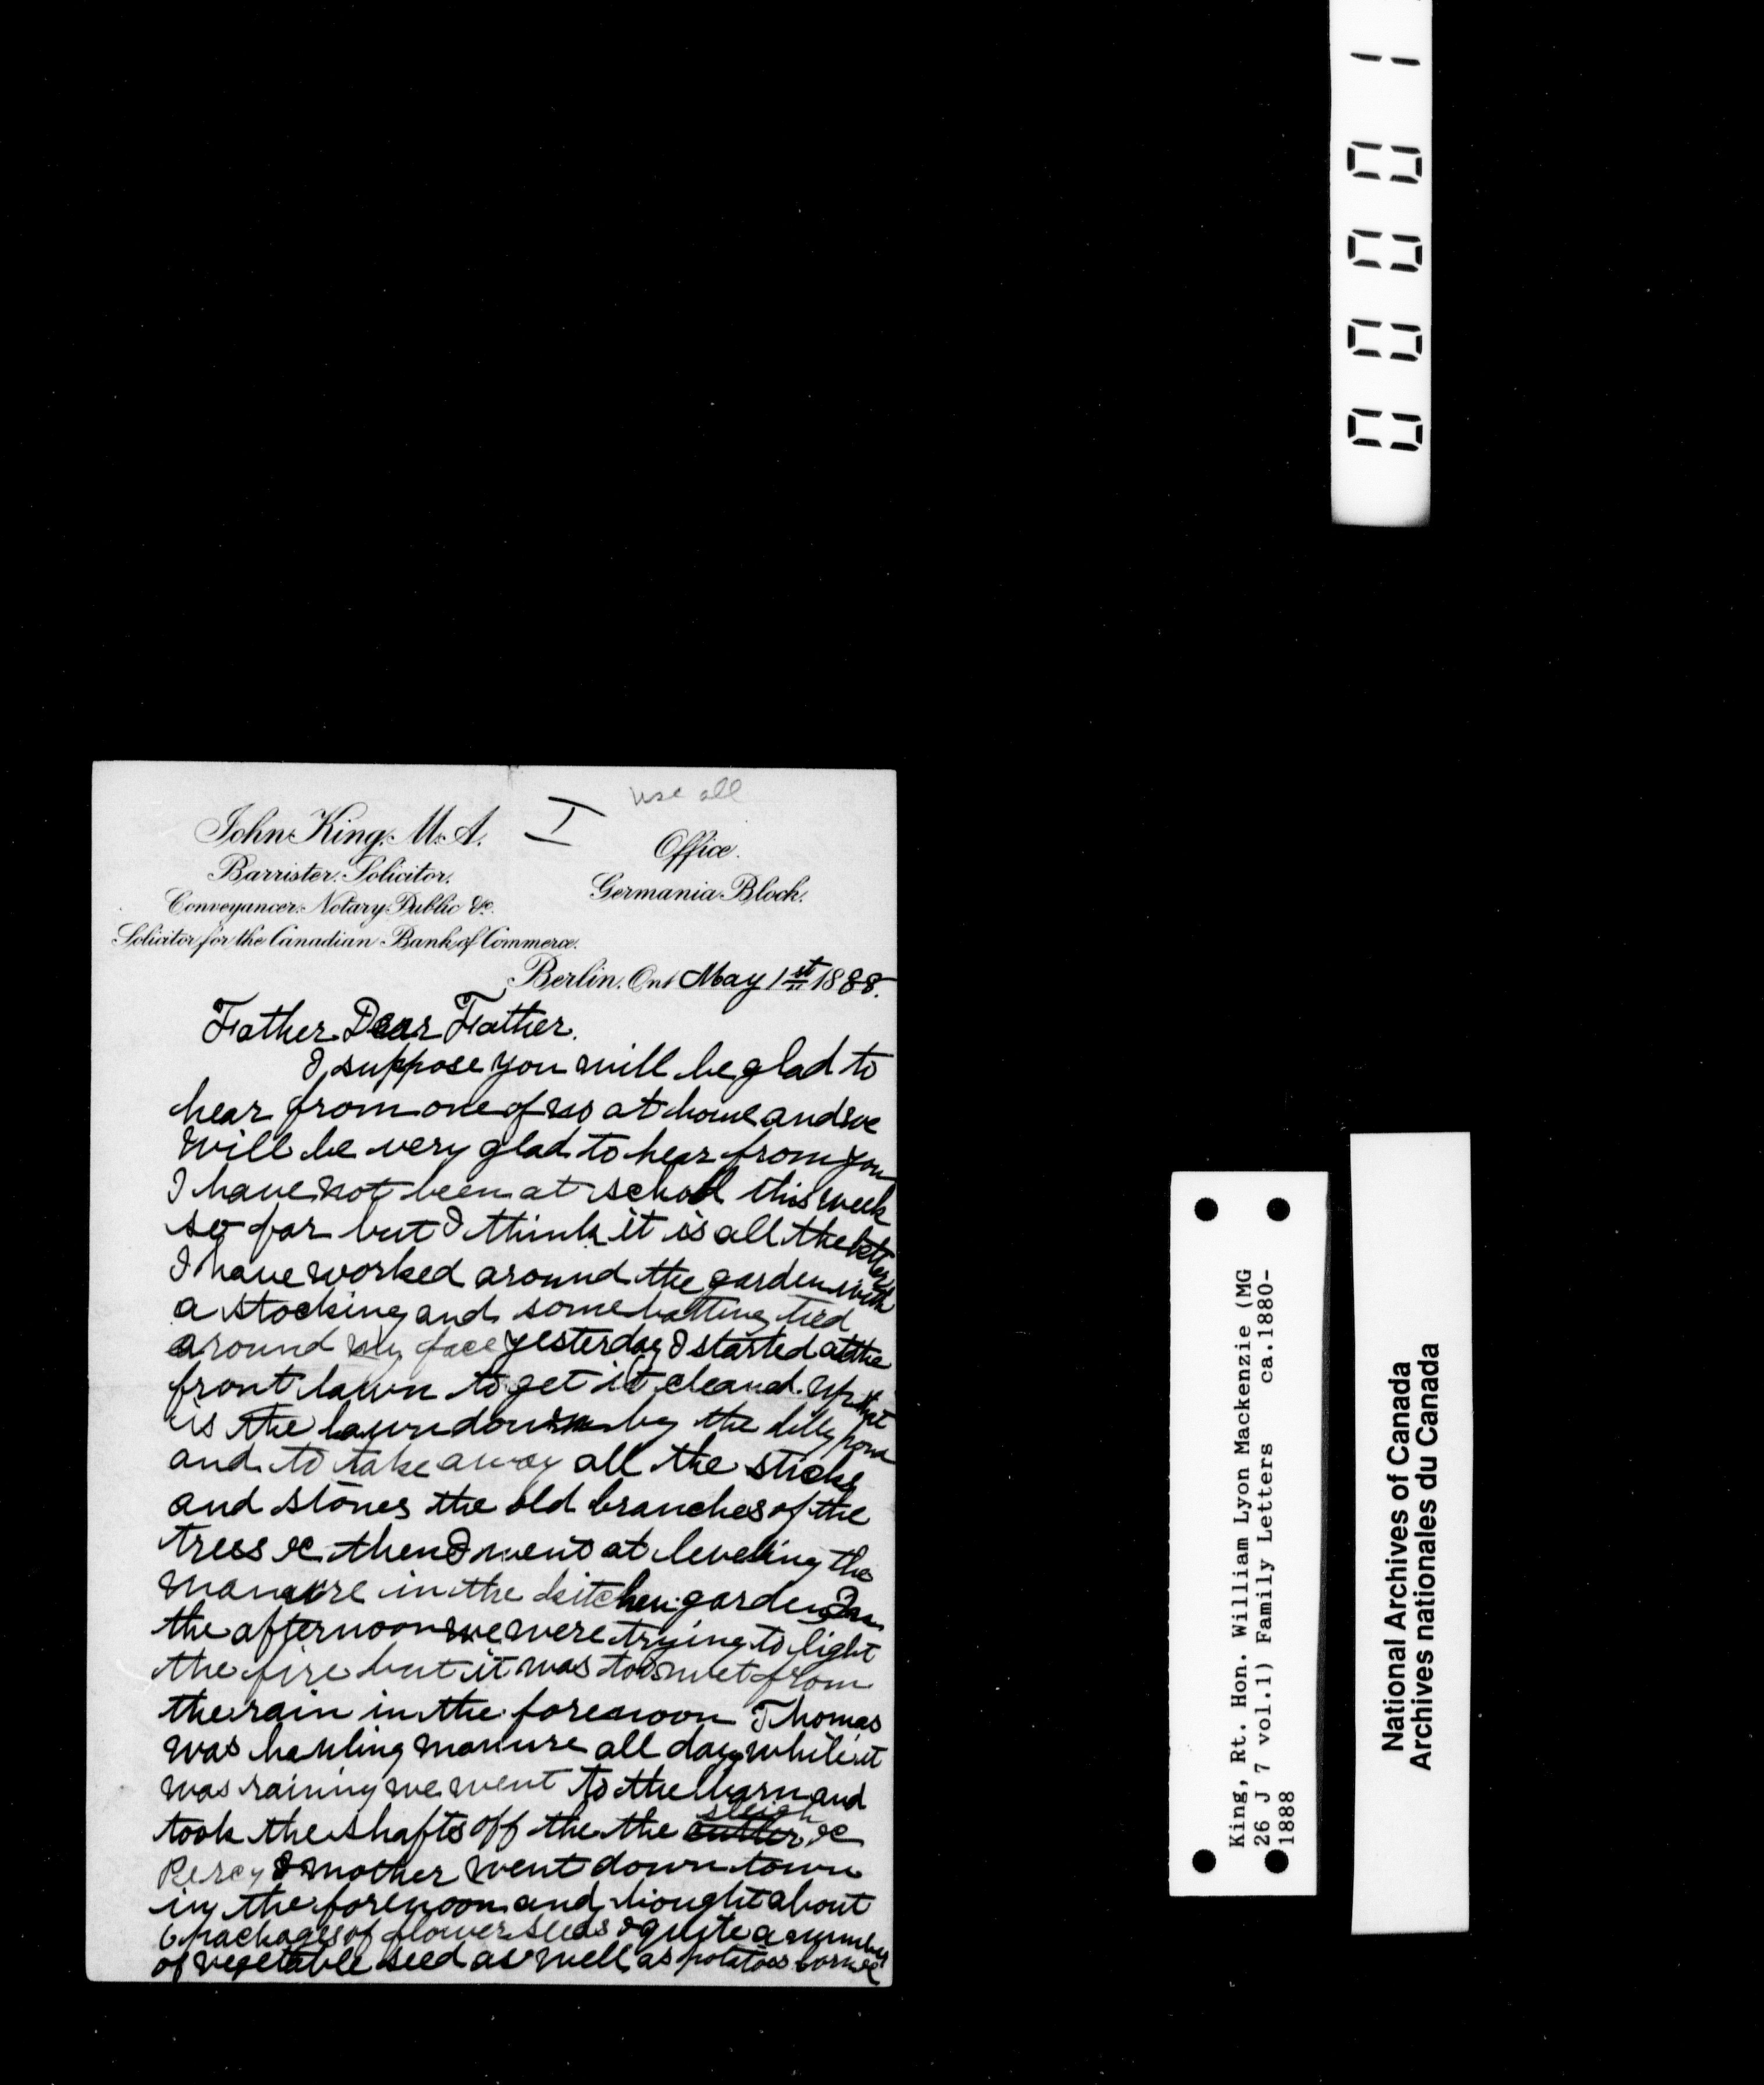 use all
I
John King, M. A.
Barrister, Solicitor,
Conveyancer, Notary Public &c.
Solicitor for the Canadian Bank of Commerce.
Office.
Germania Block.
Berlin, Ont May 1st 1888.
Father Dear Father.
I suppose you will be glad to
hear from one of us at home and we
will be very glad to hear from you
I have not been at school this week
so far but I think it is all the better
I have worked around the garden with
a stocking and some batting tied
around my face yesterday I started at the
front lawn to get it cleaned up that
is the lawn down by the lilly pond
and to take away all the sticks
and stones the old branches of the
trees &c then I went at leveling the
manure in the kitchen garden In
the afternoon we were trying to light
the fire but it was too wet from
the rain in the forenoon Thomas
was hauling manure all day while it
was raining we went to the barn and
took the shafts off the the cutter sleigh &c
Percy & mother went down town
in the forenoon and bought about
6 packages of flower seeds & quite a number
of vegetable seed as well as potatoes corn &c
00001
King, Rt. Hon. William Lyon Mackenzie (MG
26 J 7 vol.1) Family Letters ca.1880-
1888
National Archives of Canada
Archives nationales du Canada